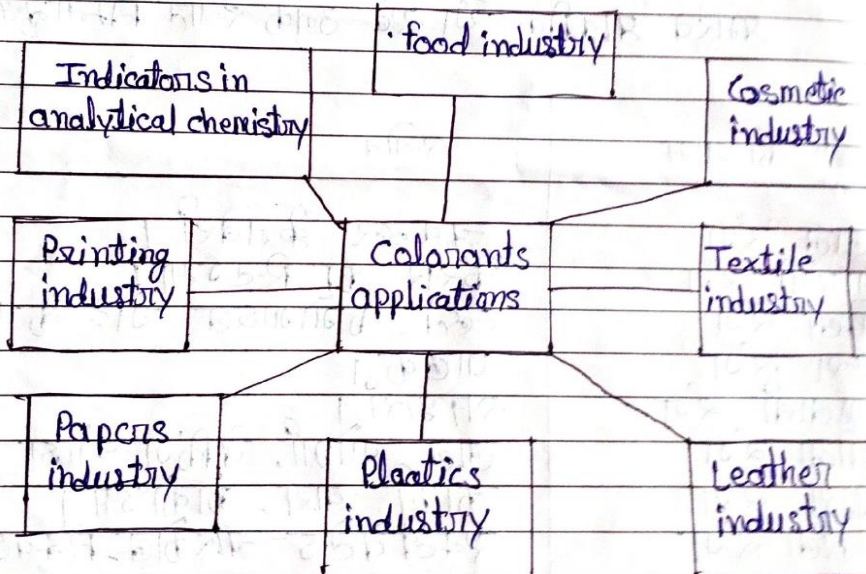 food industry
Indicators in
analytical chemistry
Cosmetic
industry
Printing
industry
Colorants
applications
Textile
industry
Papers
industry
Plastics
industry
Leather
industry